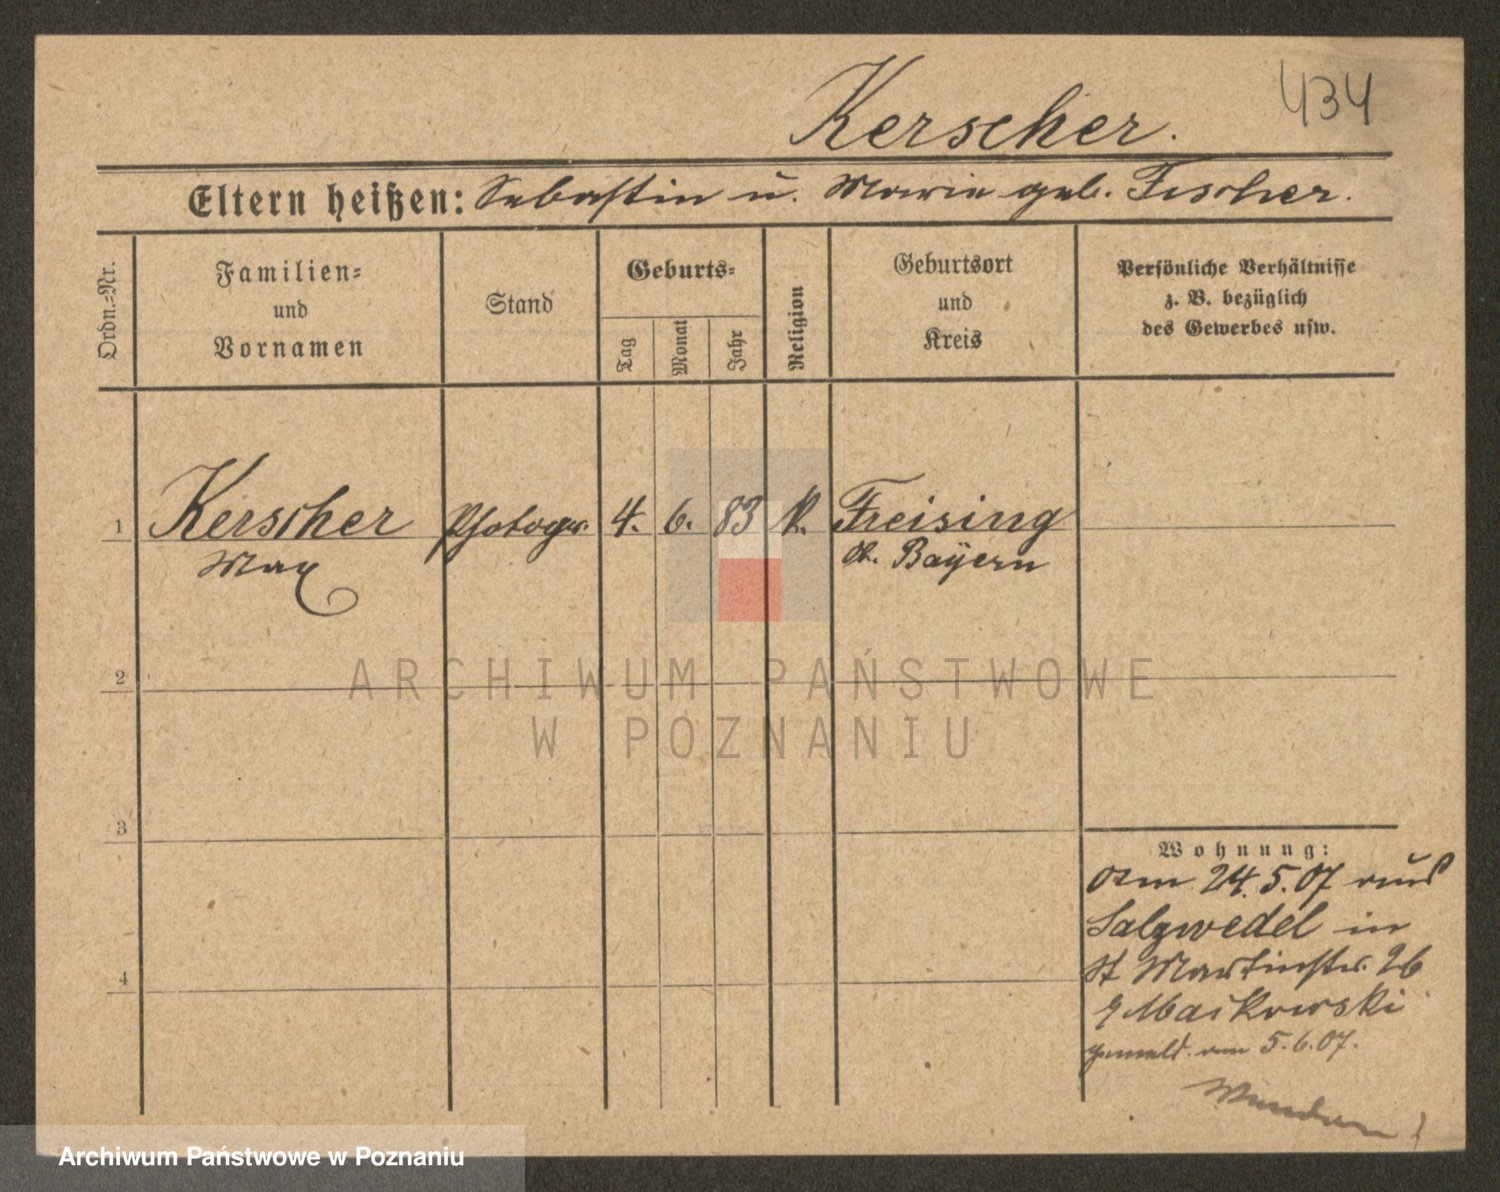 434
Kerscher.
Eltern heißen: Sebastin u. Marie geb. Fischer.
Ordn.-Nr.
Familien-
und
Vornamen
Stand
Geburts-
Tag
Monat
Jahr
Religion
Geburtsort
und
Kreis
Persönliche Verhältnisse
z. B. bezüglich
des Gewerbes usw.
1 Kerscher Photogr. 4. 6. 83 k. Freising
Max Ob. Bayern
2
ARCHIWUM PAŃSTWOWE
W POZNANIU
3
Wohnung:
Am 24.5.07 aus
Salzwedel in
St Martinstr. 26
Maikowski
gemeld. am 5.6.07.
4
Archiwum Państwowe w Poznaniu